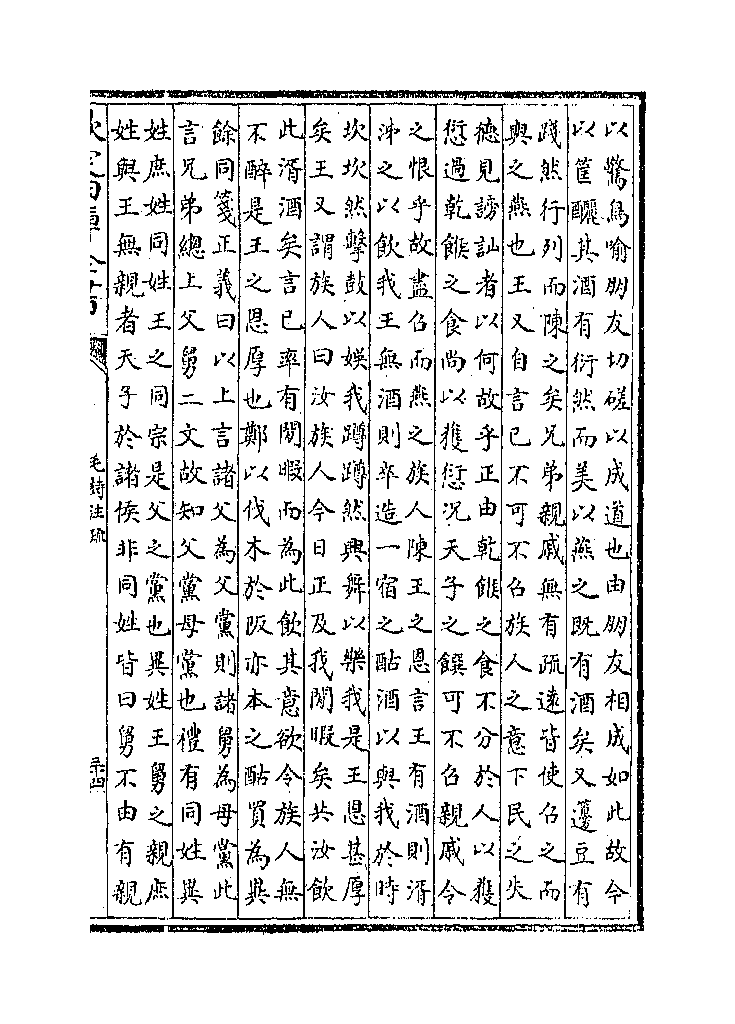 以驚鳥喻朋友切磋以成道也由朋友相成如此故今
以筐釃其酒有衍然而美以燕之既有酒矣又籩豆有
踐然行列而陳之矣兄弟親戚無有疏逺皆使召之而
與之燕也王又自言已不可不召族人之意下民之失
徳見謗訕者以何故乎正由乾餱之食不分於人以獲
愆過乾餱之食尚以獲愆况天子之饌可不召親戚令
之恨乎故盡召而燕之族人陳王之恩言王有酒則湑
沛之以飲我王無酒則卒造一宿之酤酒以與我於時
坎坎然擊鼓以娱我蹲蹲然興舞以樂我是王恩甚厚
矣王又謂族人曰汝族人今日正及我閒暇矣共汝飲
此湑酒矣言已率有閒暇而為此飲其意欲令族人無
不醉是王之恩厚也鄭以伐木於阪亦本之酤買為異
餘同箋正義曰以上言諸父為父黨則諸舅為母黨此
言兄弟總上父舅二文故知父黨母黨也禮有同姓異
姓庶姓同姓王之同宗是父之黨也異姓王舅之親庶
姓與王無親者天子於諸侯非同姓皆曰舅不由有親
欽定四庫全書
毛詩注疏
三十四